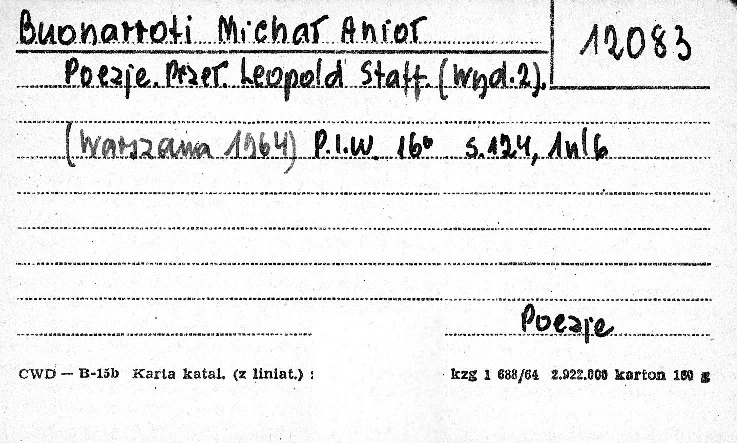 Buonarroti Michał Anioł
12083
Poezje. Przeł. Leopold Staff. (Wyd. 2).
(Warszawa 1964) P.I.W. 16° s. 124, 1nlb
Poezje
CWD — B-15b Karta katal. (z liniat.) :
kzg 1 688/64 2.922.000 karton 160 g